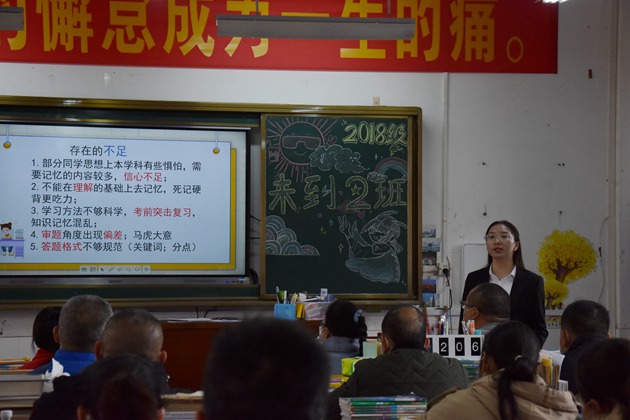 的懈怠总成为一生的痛。
存在的不足
1. 部分同学思想上本学科有些惧怕，需
要记忆的内容较多，信心不足；
2. 不能在理解的基础上去记忆，死记硬
背更吃力；
3. 学习方法不够科学，考前突击复习，
知识记忆混乱；
4. 审题角度出现偏差；马虎大意
5. 答题格式不够规范（关键词；分点）
2018级
未到2班
206